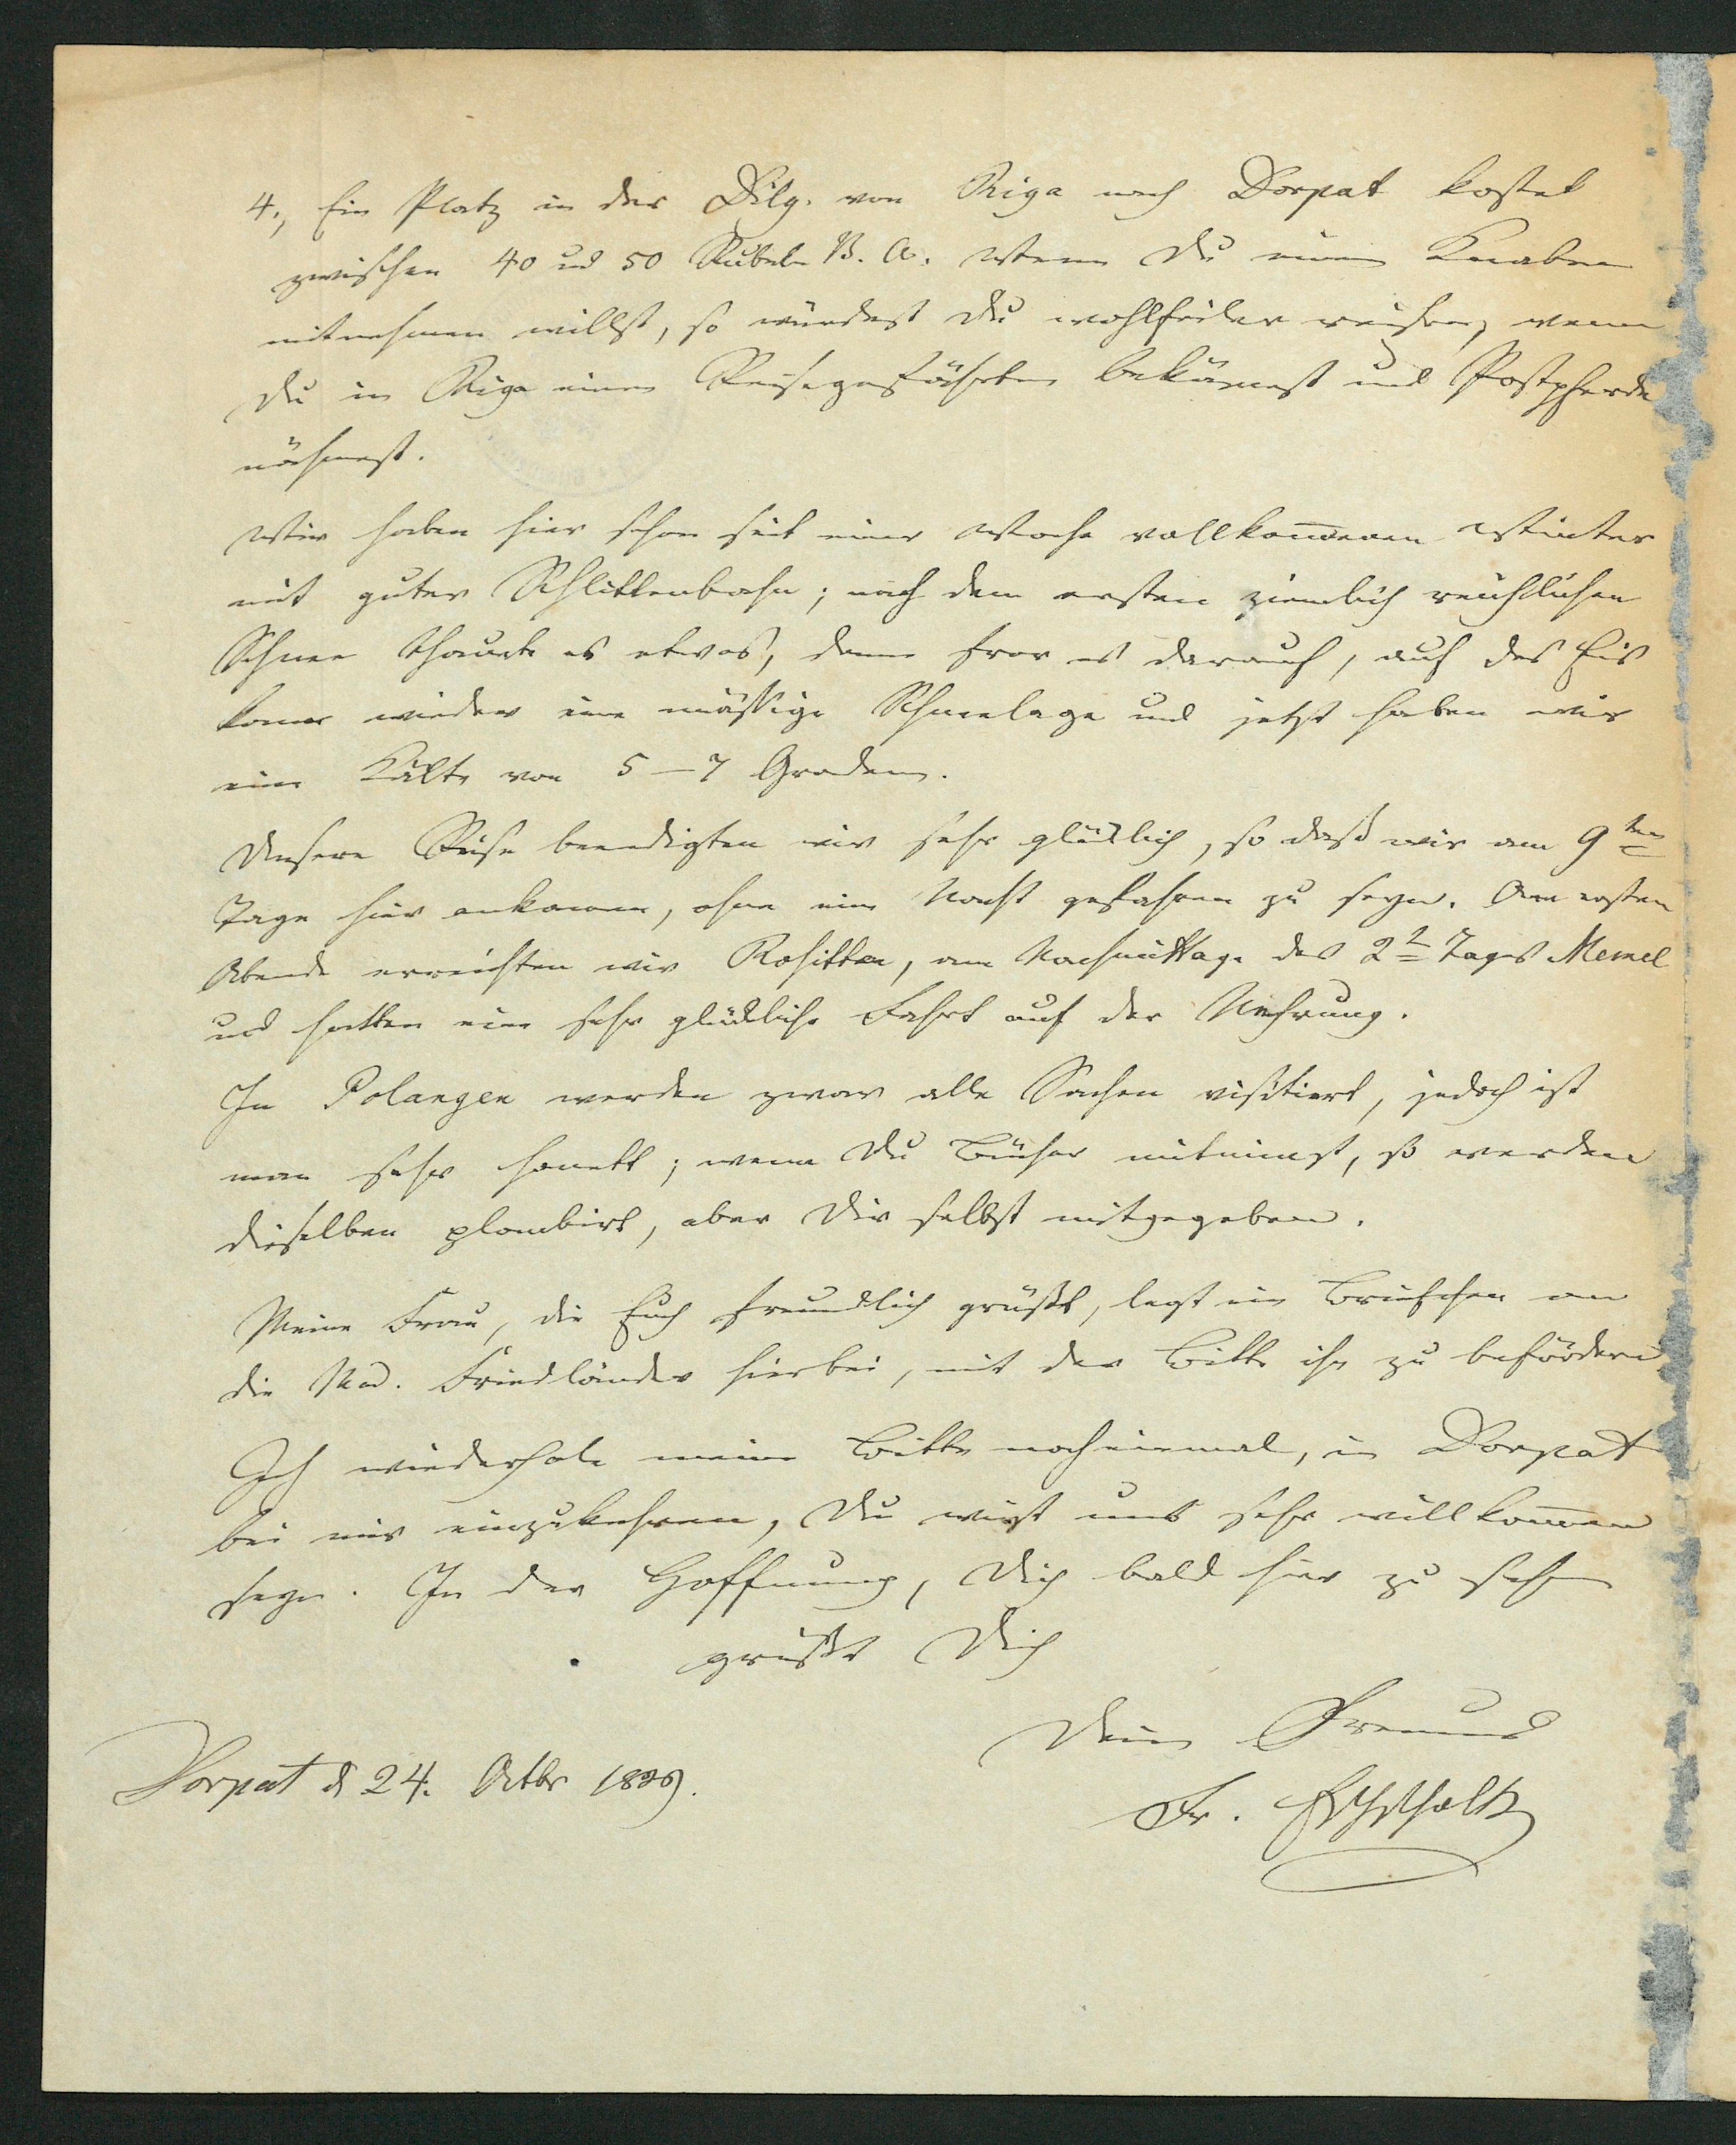 4., Ein Platz in der Dilg. von Riga nach Dorpat kostet
zwischen 40 und 50 Rubeln B. A. Wenn Du einen Knaben
mitnehmen willst, so würdest Du wohlfeiler reisen, wenn
Du in Riga einen Reisegefährten bekämest und Postpferde
nähmest.
Wir haben hier schon seit einer Woche vollkom̄enen Winter
mit guter Schlittenbahn; nach dem ersten ziemlich reichlichen
Schnee thaute es etwas, dann fror es darauf, auf das Eis
kam wieder eine mässige Schneelage und jetzt haben wir
eine Kälte von 5–7 Graden.
Unsere Reise beendigten wir sehr glücklich, so daß wir am 9ten
Tage hier ankamen, ohne eine Nacht gefahren zu seyn. Am ersten
Abende erreichten wir Rositten, am Nachmittage des 2t Tages Memel
und hatten eine sehr glückliche Fahrt auf der Nehrung.
In Polangen werden zwar alle Sachen visitiert, jedoch ist
man sehr honett; wenn Du Bücher mitnimst, so werden
dieselben plombirt, aber Dir selbst mitgegeben.
Meine Frau, die Euch freundlich grüßt, legt ein Briefchen an
die Md. Friedländer hierbei, mit der Bitte ihn zu befördern
Ich wiederhole meine Bitte nocheinmal, in Dorpat
bei mir einzukehren, Du wirst uns sehr willkom̄en
seyn. In der Hoffnung, Dich bald hier zu sehen
grüßt Dich
Dein Freund
Dorpat d 24. Octbr 1829.
Fr. Eschscholtz